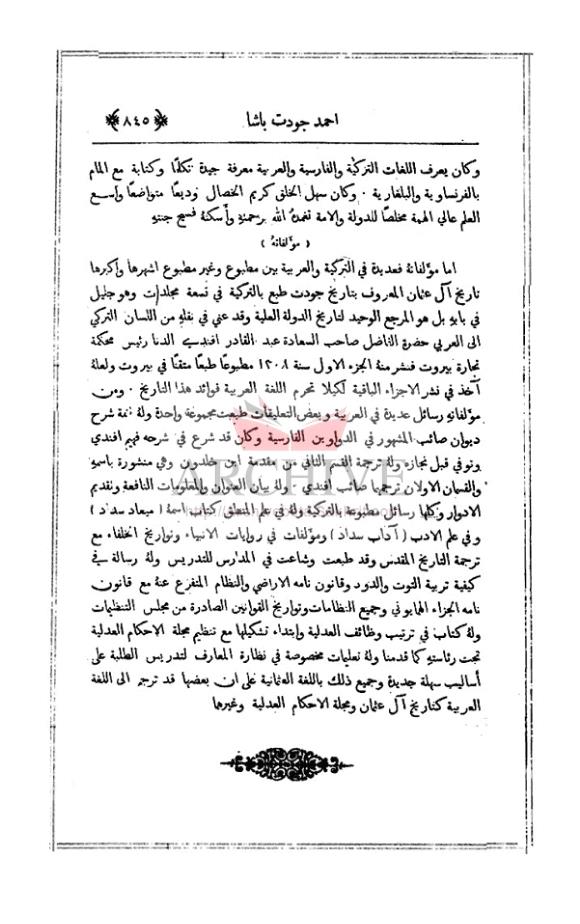 احمد جودت باشا ﴿٨٤٥﴾
وكان يعرف اللغات التركية والفارسية والعربية معرفة جيدة تكلمًا وكتابة مع المام
بالفرنساوية والبلغارية . وكان سهل الخلق كريم الخصال وديعًا متواضعًا واسع
العلم عالي الهمة مخلصًا للدولة والامة تغمدهُ الله برحمتهِ وأسكنهُ فسيح جنتهِ
( مؤلفاتهُ )
اما مؤلفاتهُ فعديدة في التركية والعربية بين مطبوع وغير مطبوع اشهرها واكبرها
تاريخ آل عثمان المعروف بتاريخ جودت طبع بالتركية في تسعة مجلدات وهو جليل
في بابهِ بل هو المرجع الوحيد لتاريخ الدولة العلية وقد عني في نقلهِ من اللسان التركي
الى العربي حضرة الفاضل صاحب السعادة عبد القادر افندي الدنا رئيس محكمة
تجارة بيروت فنشر منهُ الجزء الاول سنة ١٣٠٨ مطبوعًا طبعًا متقنًا في بيروت ولعلهُ
آخذ في نشر الاجزاء الباقية لكيلا تحرم اللغة العربية فوائد هذا التاريخ . ومن
مؤلفاتهِ رسائل عديدة في العربية وبعض التعليقات طبعت مجموعة واحدة ولهُ تتمة شرح
ديوان صائب المشهور في الدواوين الفارسية وكان قد شرع في شرحهِ فهيم افندي
وتوفي قبل نجازه ولهُ ترجمة القسم الثاني من مقدمة ابن خلدون وهي منشورة باسمهِ
والقسمان الاولان ترجمها صائب افندي . ولهُ بيان العنوان والمعلومات النافعة وتقديم
الادوار وكلها رسائل مطبوعة بالتركية ولهُ في علم المنطق كتاب اسمهُ ( ميعاد سداد )
وفي علم الادب ( آداب سداد ) ومؤلفات في روايات الانبياء وتواريخ الخلفاء مع
ترجمة التاريخ المقدس وقد طبعت وشاعت في المدارس للتدريس ولهُ رسالة في
كيفية تربية التوت والدود وقانون نامه الاراضي والنظام المتفرع عنهُ مع قانون
نامه الجزاء الهمايوني وجميع النظامات وتواريخ القوانين الصادرة من مجلس التنظيمات
ولهُ كتاب في ترتيب وظائف العدلية وابتداء تشكيلها مع تنظيم مجلة الاحكام العدلية
تحت رئاستهِ كما قدمنا ولهُ تعليمات مخصوصة في نظارة المعارف لتدريس الطلبة على
أساليب سهلة جديدة وجميع ذلك باللغة العثمانية على ان بعضها قد ترجم الى اللغة
العربية كتاريخ آل عثمان ومجلة الاحكام العدلية وغيرها
ARCHIVE